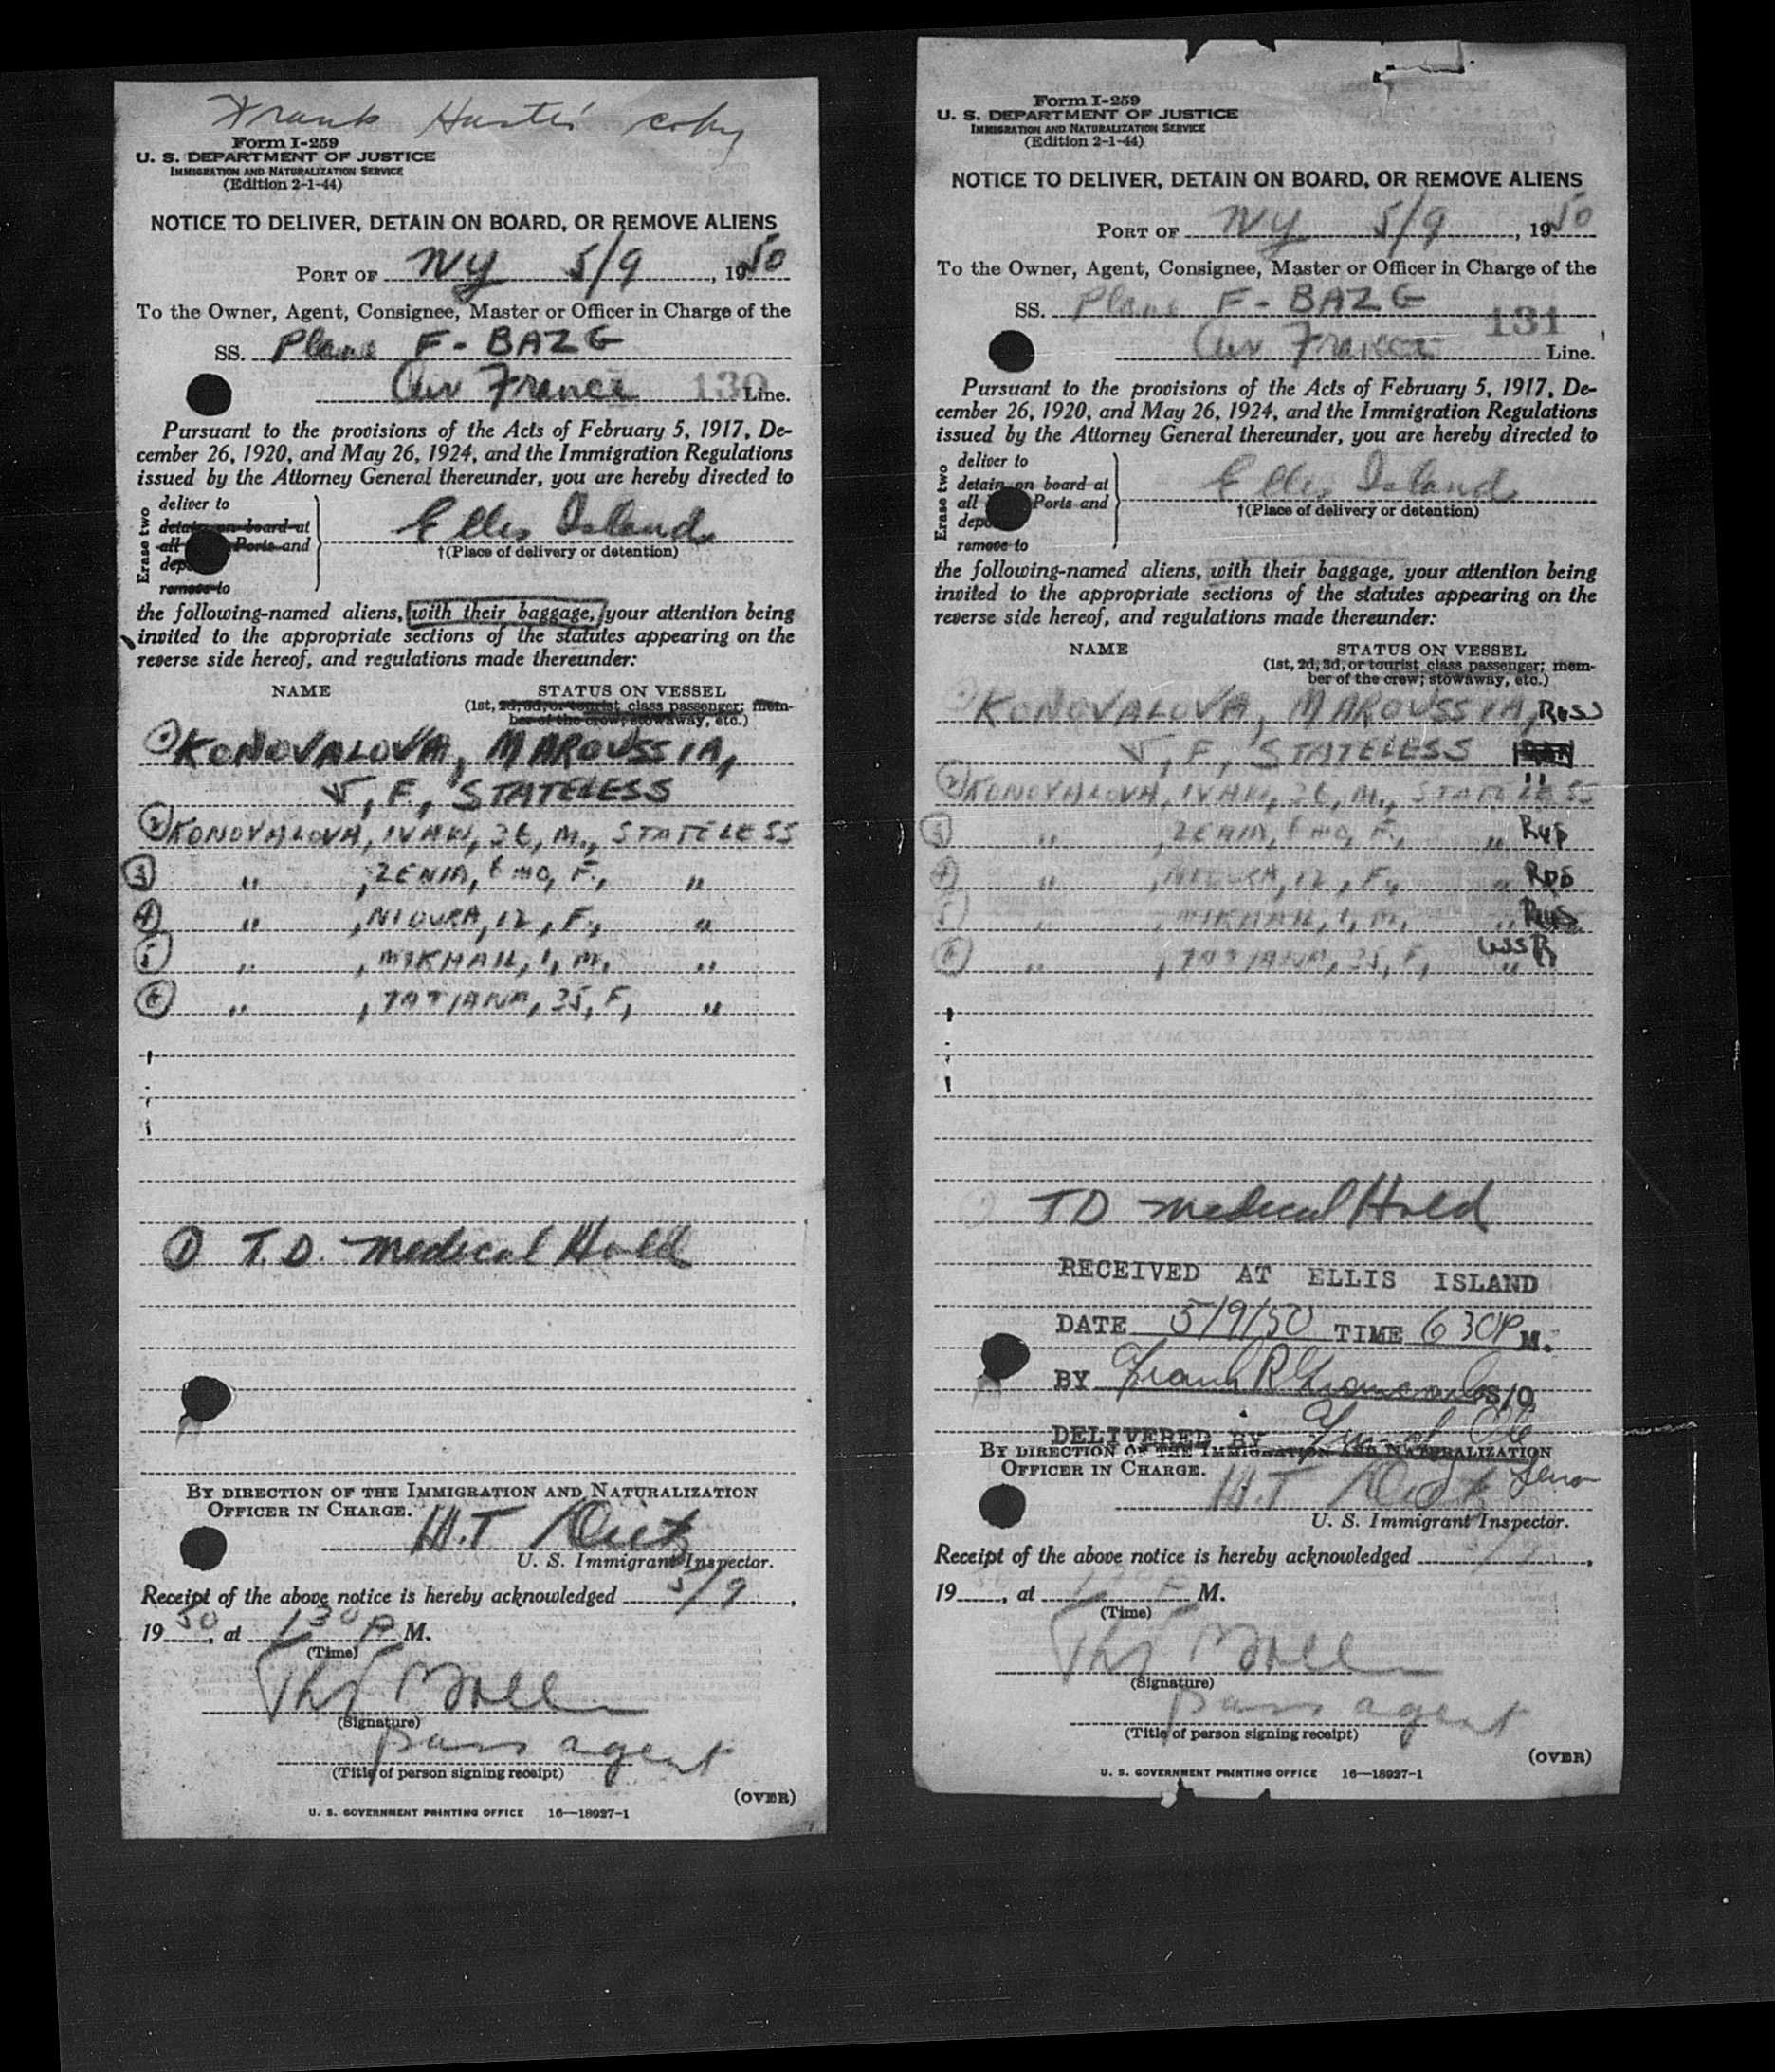 Frank copy
Form I-259
U. S. DEPARTMENT OF JUSTICE
IMMIGRATION AND NATURALIZATION SERVICE
(Edition 2-1-44)
NOTICE TO DELIVER, DETAIN ON BOARD, OR REMOVE ALIENS
PORT OF NY 5/9, 1950
To the Owner, Agent, Consignee, Master or Officer in Charge of the
SS. Plane F-BAZG
Air France 130 Line.
Pursuant to the provisions of the Acts of February 5, 1917, De-
cember 26, 1920, and May 26, 1924, and the Immigration Regulations
issued by the Attorney General thereunder, you are hereby directed to
Erase two
deliver to
detain on board at
all Ports and
remove to
Ellis Island
†(Place of delivery or detention)
the following-named aliens, with their baggage, your attention being
invited to the appropriate sections of the statutes appearing on the
reverse side hereof, and regulations made thereunder:
NAME STATUS ON VESSEL
(1st, 2d, 3d, or tourist class passenger; mem-
ber of the crew; stowaway, etc.)
① KONOVALOVA, MAROUSSIA,
5, F., STATELESS
② KONOVALOVA, IVAN, 36, M., STATELESS
③ " , ZENIA, 6 mo, F., "
④ " , NIOURA, 12, F., "
⑤ " , MIKHAIL, 1, M., "
⑥ " , TATJANA, 35, F, "
① T.D. Medical Hold
BY DIRECTION OF THE IMMIGRATION AND NATURALIZATION
OFFICER IN CHARGE.
U. S. Immigrant Inspector.
Receipt of the above notice is hereby acknowledged 5/9,
1950, at 1 30 P M.
(Time)
(Signature)
pass agent
(Title of person signing receipt)
(OVER)
U. S. GOVERNMENT PRINTING OFFICE 16—18927-1
Form I-259
U. S. DEPARTMENT OF JUSTICE
IMMIGRATION AND NATURALIZATION SERVICE
(Edition 2-1-44)
NOTICE TO DELIVER, DETAIN ON BOARD, OR REMOVE ALIENS
PORT OF NY 5/9, 1950
To the Owner, Agent, Consignee, Master or Officer in Charge of the
SS. Plane F-BAZG
131
Air France Line.
Pursuant to the provisions of the Acts of February 5, 1917, De-
cember 26, 1920, and May 26, 1924, and the Immigration Regulations
issued by the Attorney General thereunder, you are hereby directed to
Erase two
deliver to
detain on board at
all Ports and
remove to
Ellis Island
†(Place of delivery or detention)
the following-named aliens, with their baggage, your attention being
invited to the appropriate sections of the statutes appearing on the
reverse side hereof, and regulations made thereunder:
NAME STATUS ON VESSEL
(1st, 2d, 3d, or tourist class passenger; mem-
ber of the crew; stowaway, etc.)
KONOVALOVA, MAROUSSIA, Russ
5, F, STATELESS
② KONOVALOVA, IVAN, 36, M., STATELESS
③ " , ZENIA, 6 mo, F., " Rus
④ " , NIOURA, 12, F., " Rus
⑤ " , MIKHAIL, 1, M., " Rus
⑥ " , TATJANA, 35, F, " USSR
TD Medical Hold
RECEIVED AT ELLIS ISLAND
DATE 5/9/50 TIME 6 30 P M.
BY Frank R S/O
DELIVERED BY
BY DIRECTION OF THE IMMIGRATION AND NATURALIZATION
OFFICER IN CHARGE.
U. S. Immigrant Inspector.
Receipt of the above notice is hereby acknowledged 5/9,
1950, at 1 30 P M.
(Time)
(Signature)
pass agent
(Title of person signing receipt)
(OVER)
U. S. GOVERNMENT PRINTING OFFICE 16—18927-1